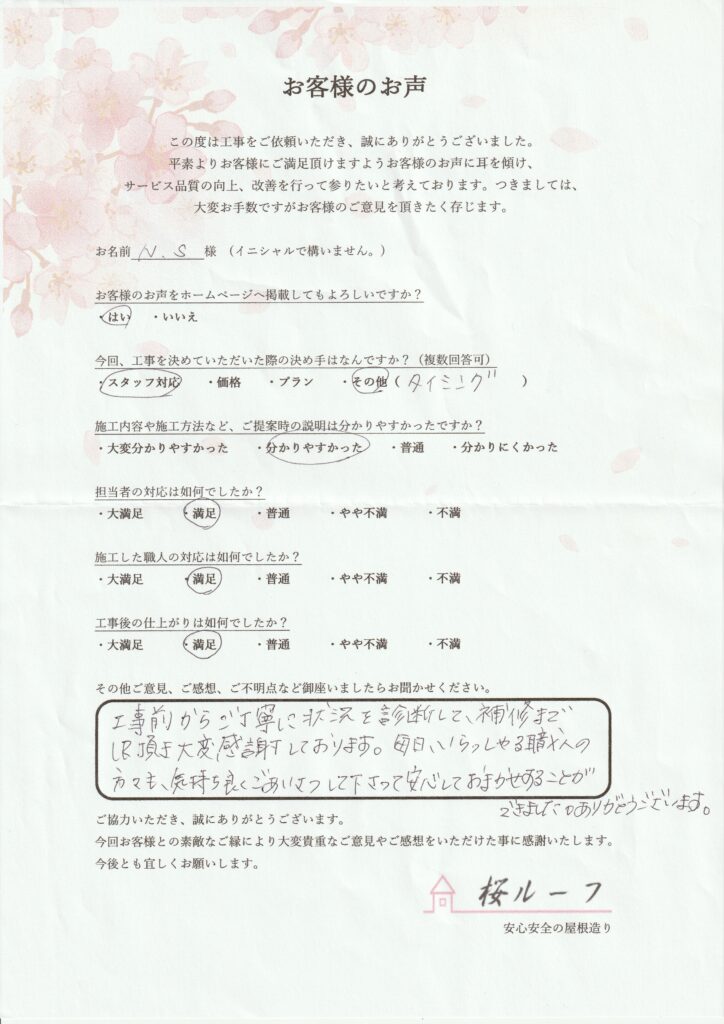 お客様のお声
この度は工事をご依頼いただき、誠にありがとうございました。
平素よりお客様にご満足頂けますようお客様のお声に耳を傾け、
サービス品質の向上、改善を行って参りたいと考えております。つきましては、
大変お手数ですがお客様のご意見を頂きたく存じます。
お名前 N.S 様 （イニシャルで構いません。）
お客様のお声をホームページへ掲載してもよろしいですか？
・はい ・いいえ
今回、工事を決めていただいた際の決め手はなんですか？（複数回答可）
・スタッフ対応 ・価格 ・プラン ・その他（ タイミング ）
施工内容や施工方法など、ご提案時の説明は分かりやすかったですか？
・大変分かりやすかった ・分かりやすかった ・普通 ・分かりにくかった
担当者の対応は如何でしたか？
・大満足 ・満足 ・普通 ・やや不満 ・不満
施工した職人の対応は如何でしたか？
・大満足 ・満足 ・普通 ・やや不満 ・不満
工事後の仕上がりは如何でしたか？
・大満足 ・満足 ・普通 ・やや不満 ・不満
その他ご意見、ご感想、ご不明点など御座いましたらお聞かせください。
工事前からご丁寧に状況を診断して、補修まで
して頂き大変感謝しております。毎日いらっしゃる職人の
方々も、気持ち良くごあいさつして下さって安心しておまかせすることが
できました。ありがとうございます。
ご協力いただき、誠にありがとうございます。
今回お客様との素敵なご縁により大変貴重なご意見やご感想をいただけた事に感謝いたします。
今後とも宜しくお願いします。
桜ルーフ
安心安全の屋根造り